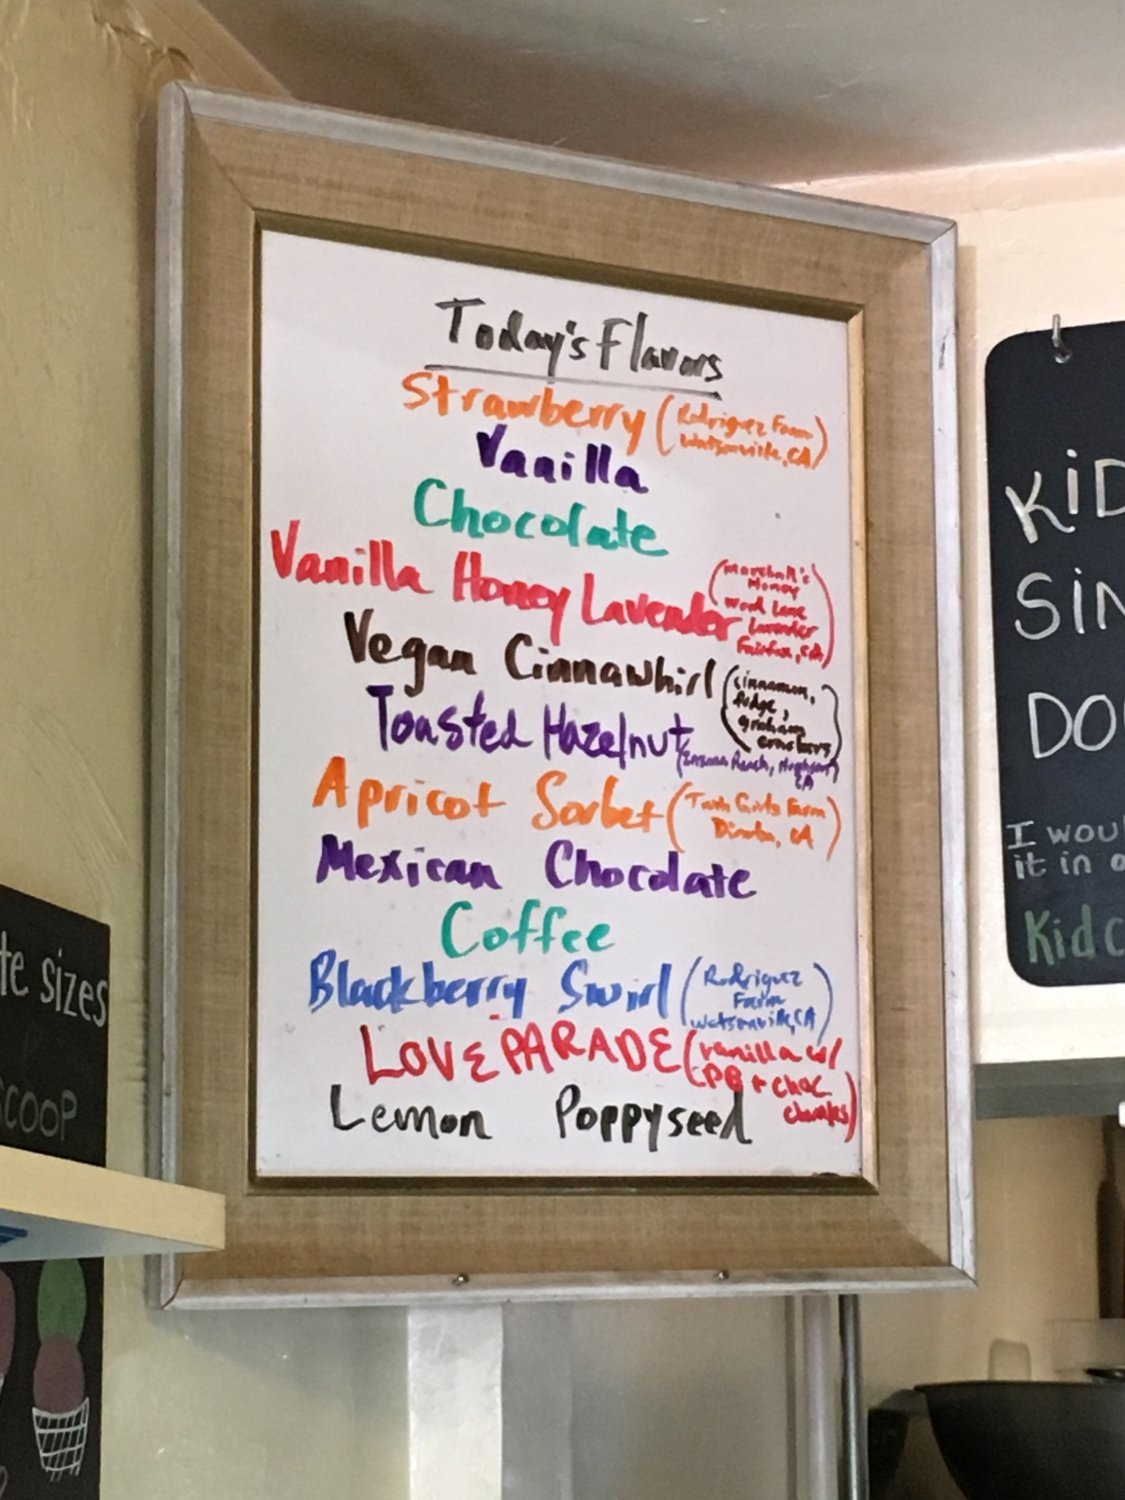 Today's Flavors
Strawberry (Rodriguez Farm
Watsonville, CA)
Vanilla
Chocolate
Vanilla Honey Lavender (Marshall's
Honey
Wood Lane
Lavender
Fairfax, CA)
Vegan Cinnawhirl (cinnamon,
fudge,
graham
crackers)
Toasted Hazelnut
Ranch, Hughson
CA)
Apricot Sorbet (Twin Girls Farm
Dinuba, CA)
Mexican Chocolate
Coffee
Blackberry Swirl (Rodriguez
Farm
Watsonville, CA)
LOVE PARADE (vanilla w/
PB + choc
chunks)
Lemon Poppyseed
te sizes
SCOOP
KiD
SiN
DO
I wou
it in o
Kidc